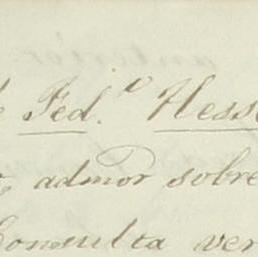 Fed.º Hess
admor sobre
Consulta ver